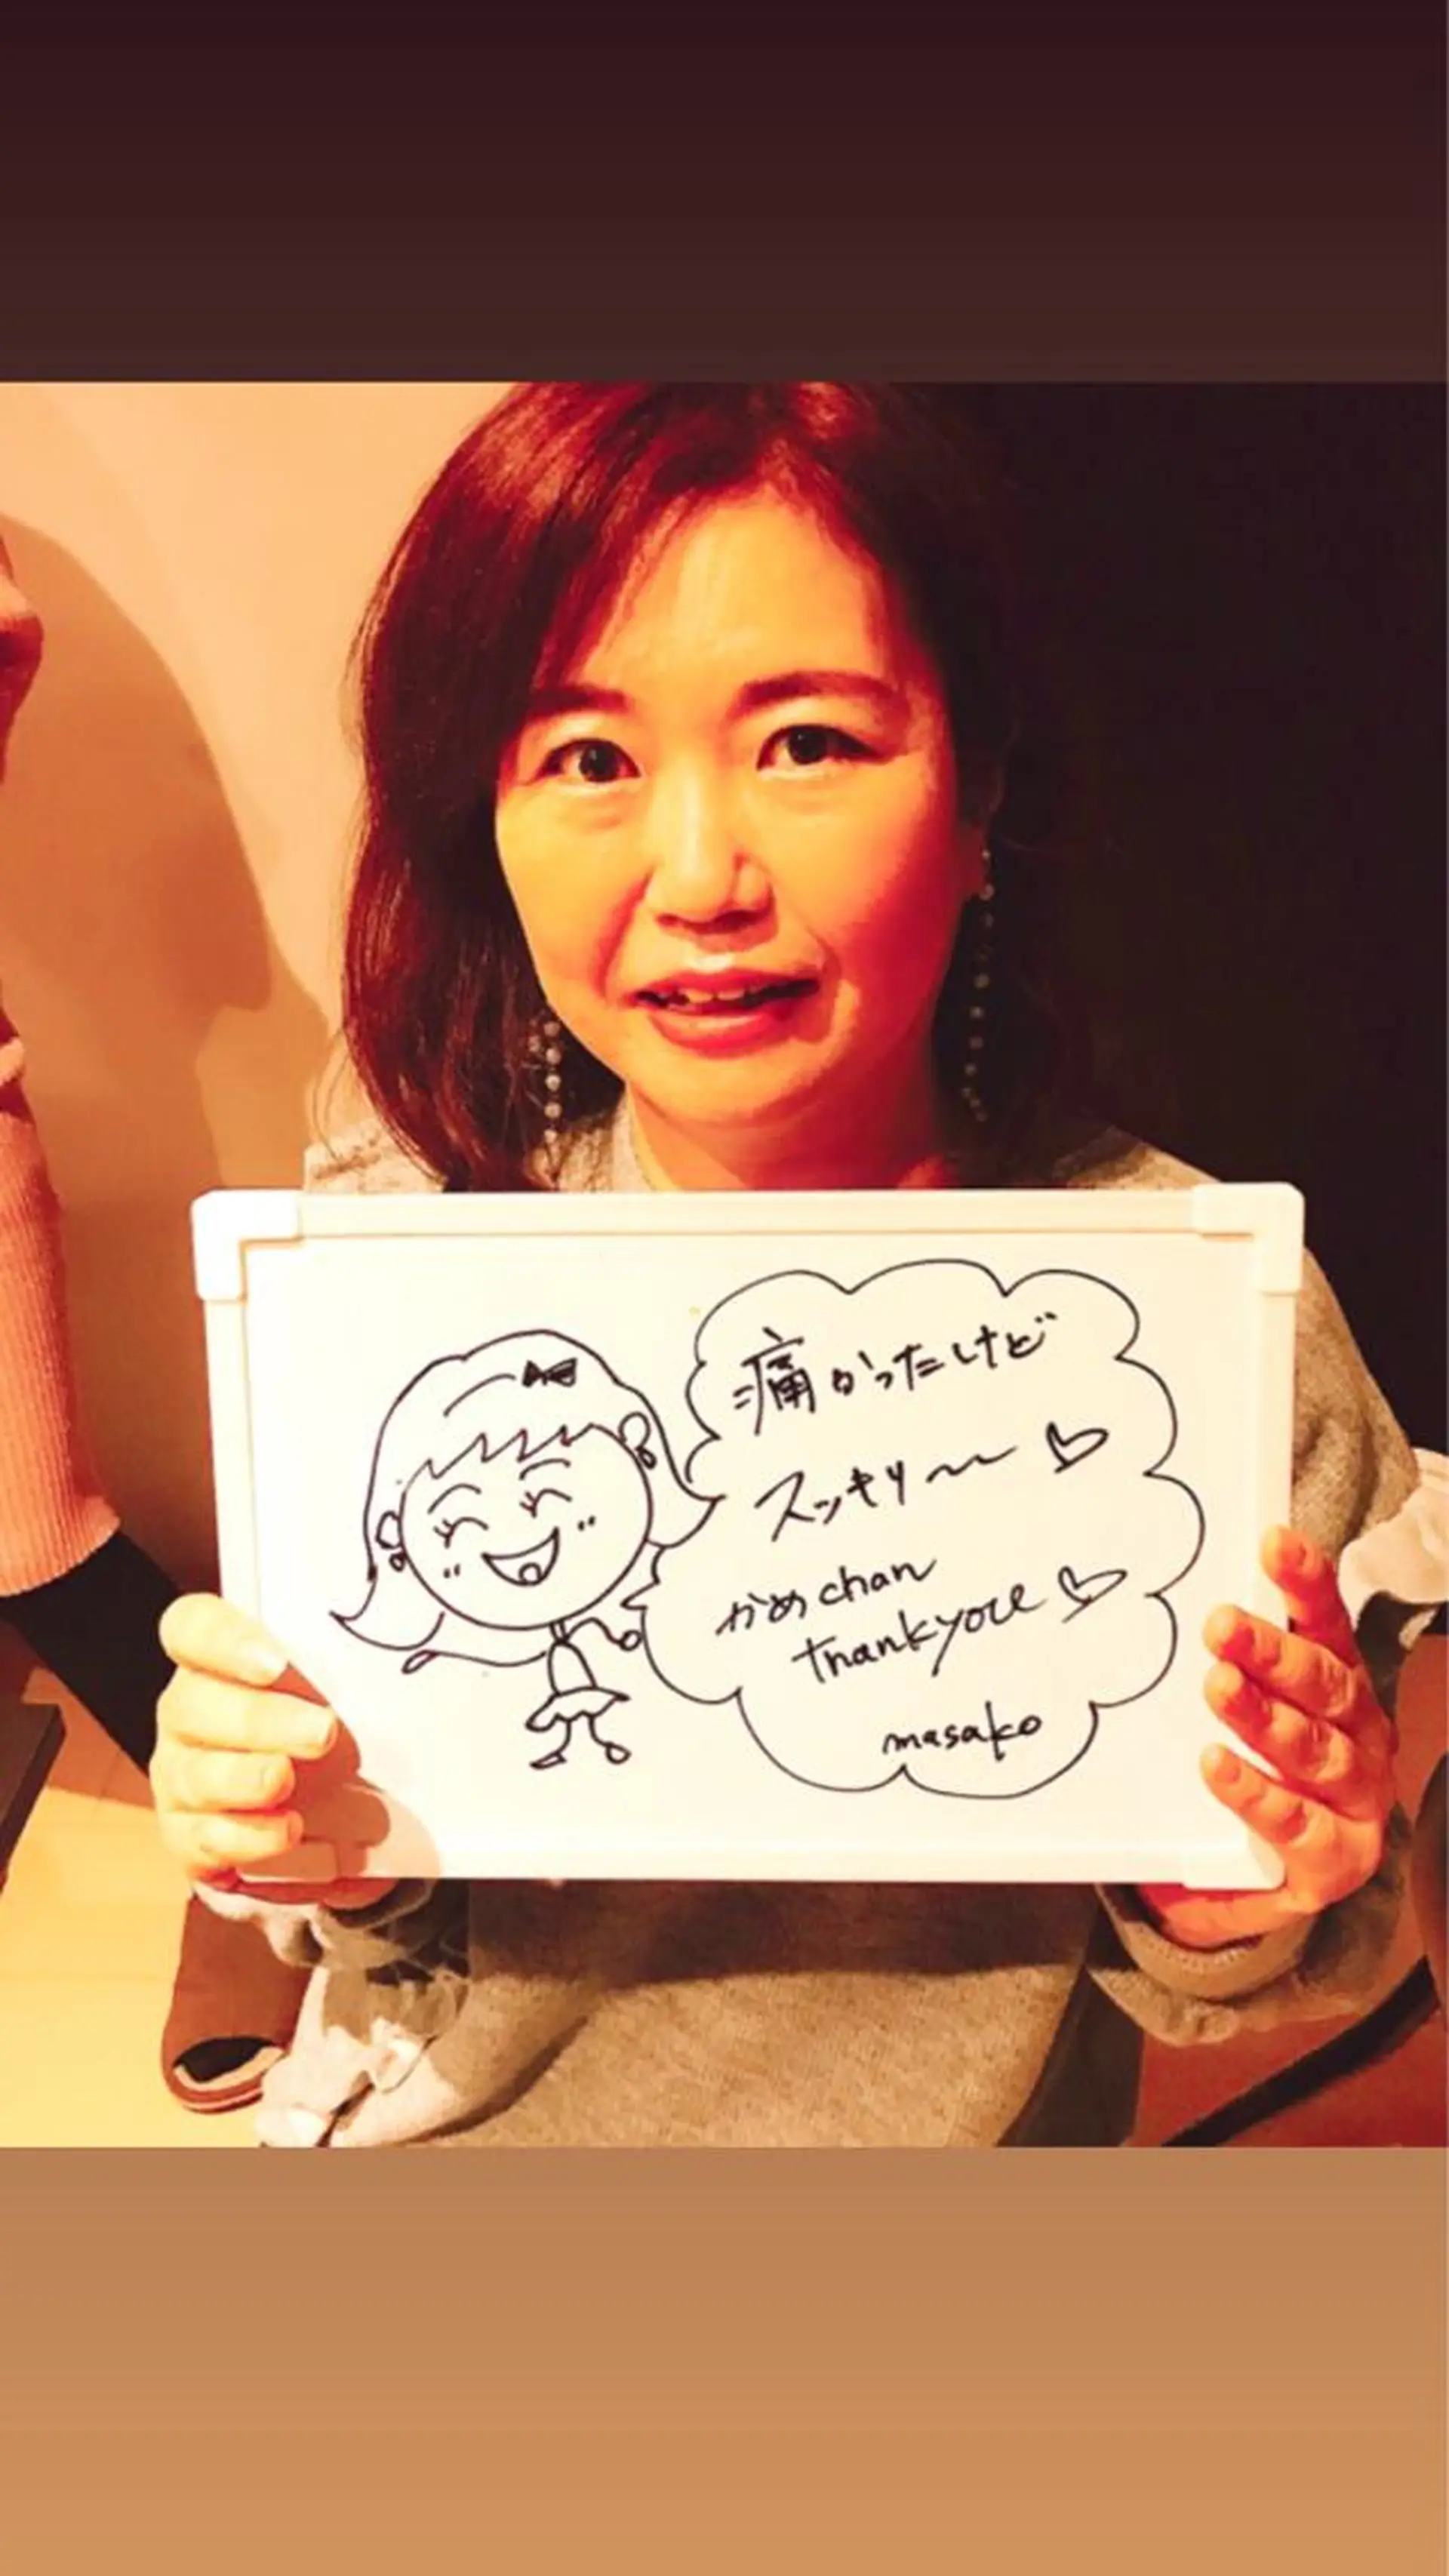 痛かったけど
スッキリ〜〜♡
かめchan
thankyou♡
masako